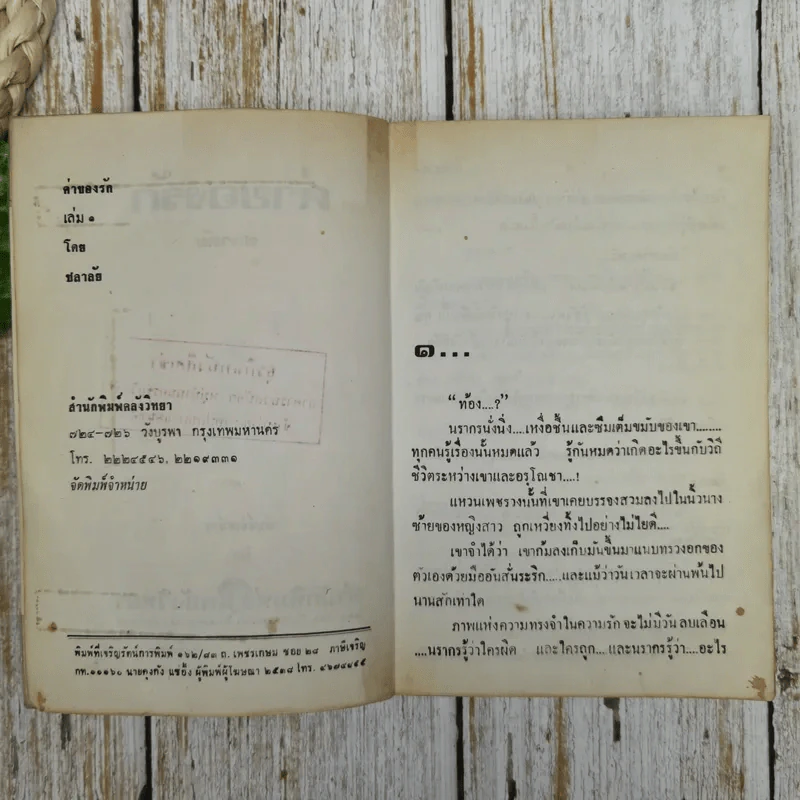 ค่าของรัก
เล่ม ๑
โดย
ชลาลัย
สำนักพิมพ์คลังวิทยา
๗๒๔-๗๒๖ วังบูรพา กรุงเทพมหานคร
โทร. ๒๒๒๔๕๔๖, ๒๒๑๙๓๓๑
จัดพิมพ์จำหน่าย
พิมพ์ที่เจริญรัตน์การพิมพ์ ๑๖๒/๘๓ ถ. เพชรเกษม ซอย ๒๘ ภาษีเจริญ
กท.๑๑๑๖๐ ผู้พิมพ์ผู้โฆษณา ๒๕๑๘ โทร.
๑...
“ท้อง....?”
นรากรนั่งนิ่ง....เหงื่อชื้นและซึมเต็มขมับของเขา........
ทุกคนรู้เรื่องนั้นหมดแล้ว รู้กันหมดว่าเกิดอะไรขึ้นกับวิถี
ชีวิตระหว่างเขาและอรุโณชา....!
แหวนเพชรวงนั้นที่เขาเคยบรรจงสวมลงไปในนิ้วนาง
ซ้ายของหญิงสาว ถูกเหวี่ยงทิ้งไปอย่างไม่ไยดี....
เขาจำได้ว่า เขาก้มลงเก็บมันขึ้นมาแนบทรวงอกของ
ตัวเองด้วยมืออันสั่นระริก.....และแม้ว่าวันเวลาจะผ่านพ้นไป
นานสักเท่าใด
ภาพแห่งความทรงจำในความรัก จะไม่มีวันลบเลือน
....นรากรรู้ว่าใครผิด และใครถูก... และนรากรรู้ว่า....อะไร